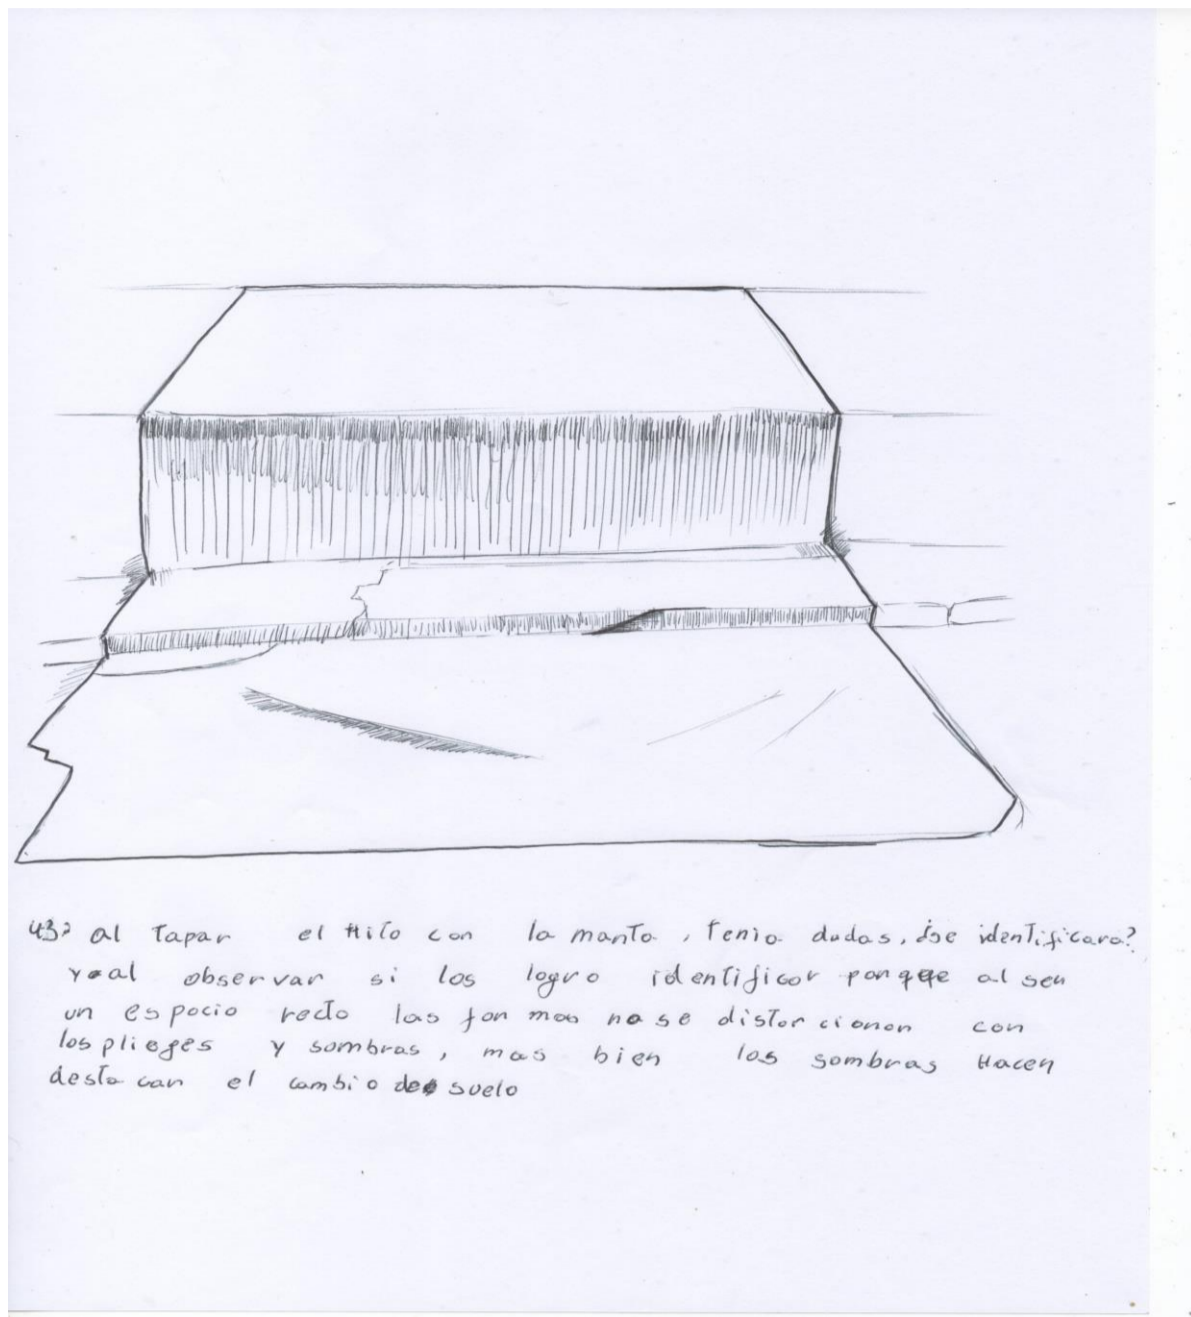 43) al tapar el Hito con la manta, tenia dudas, ¿se identificara?
y al observar si los logro identificar porque al ser
un espacio recto las formas no se distorcionan con
los plieges y sombras, mas bien las sombras Hacen
destacar el cambio de suelo